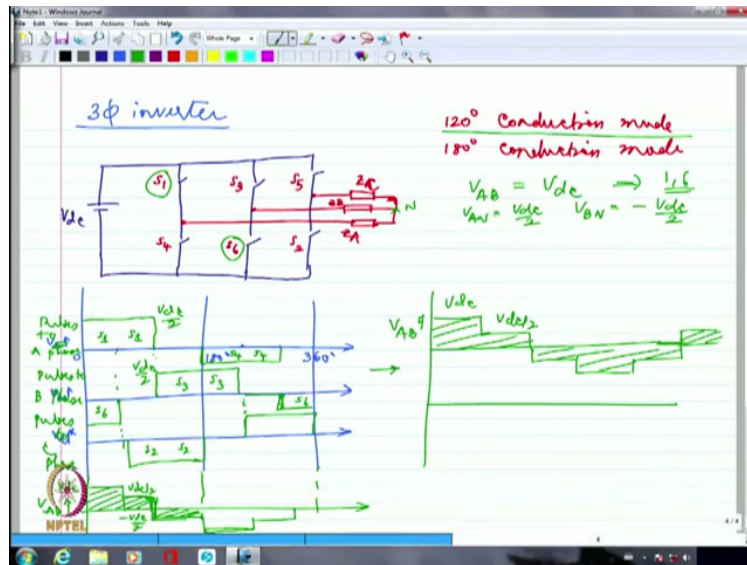 Note1 - Windows Journal
File Edit View Insert Actions Tools Help
Whole Page
3ϕ inverter
120° Conduction mode
180° Conduction mode
V_AB = Vdc → 1,6
V_AN = Vdc/2 V_BN = - Vdc/2
S1 S3 S5
Vdc
N
S4 S6 S2
Pulses to A phase
S1 S1 Vdc/2
180° S4 S4 360°
Pulses to B Phase
Vdc/2 S3 S3
S6 S6
Pulses
Phase
S2 S2
V_AB Vdc/2
-Vdc/2
V_AB Vdc Vdc/2
NPTEL
4/4
4